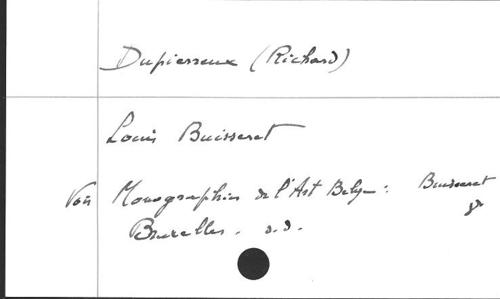 Dupierreux (Richard)
Louis Buisseret
Voir Monographies de l'Art Belge : Buisseret
Bruxelles. s.d.